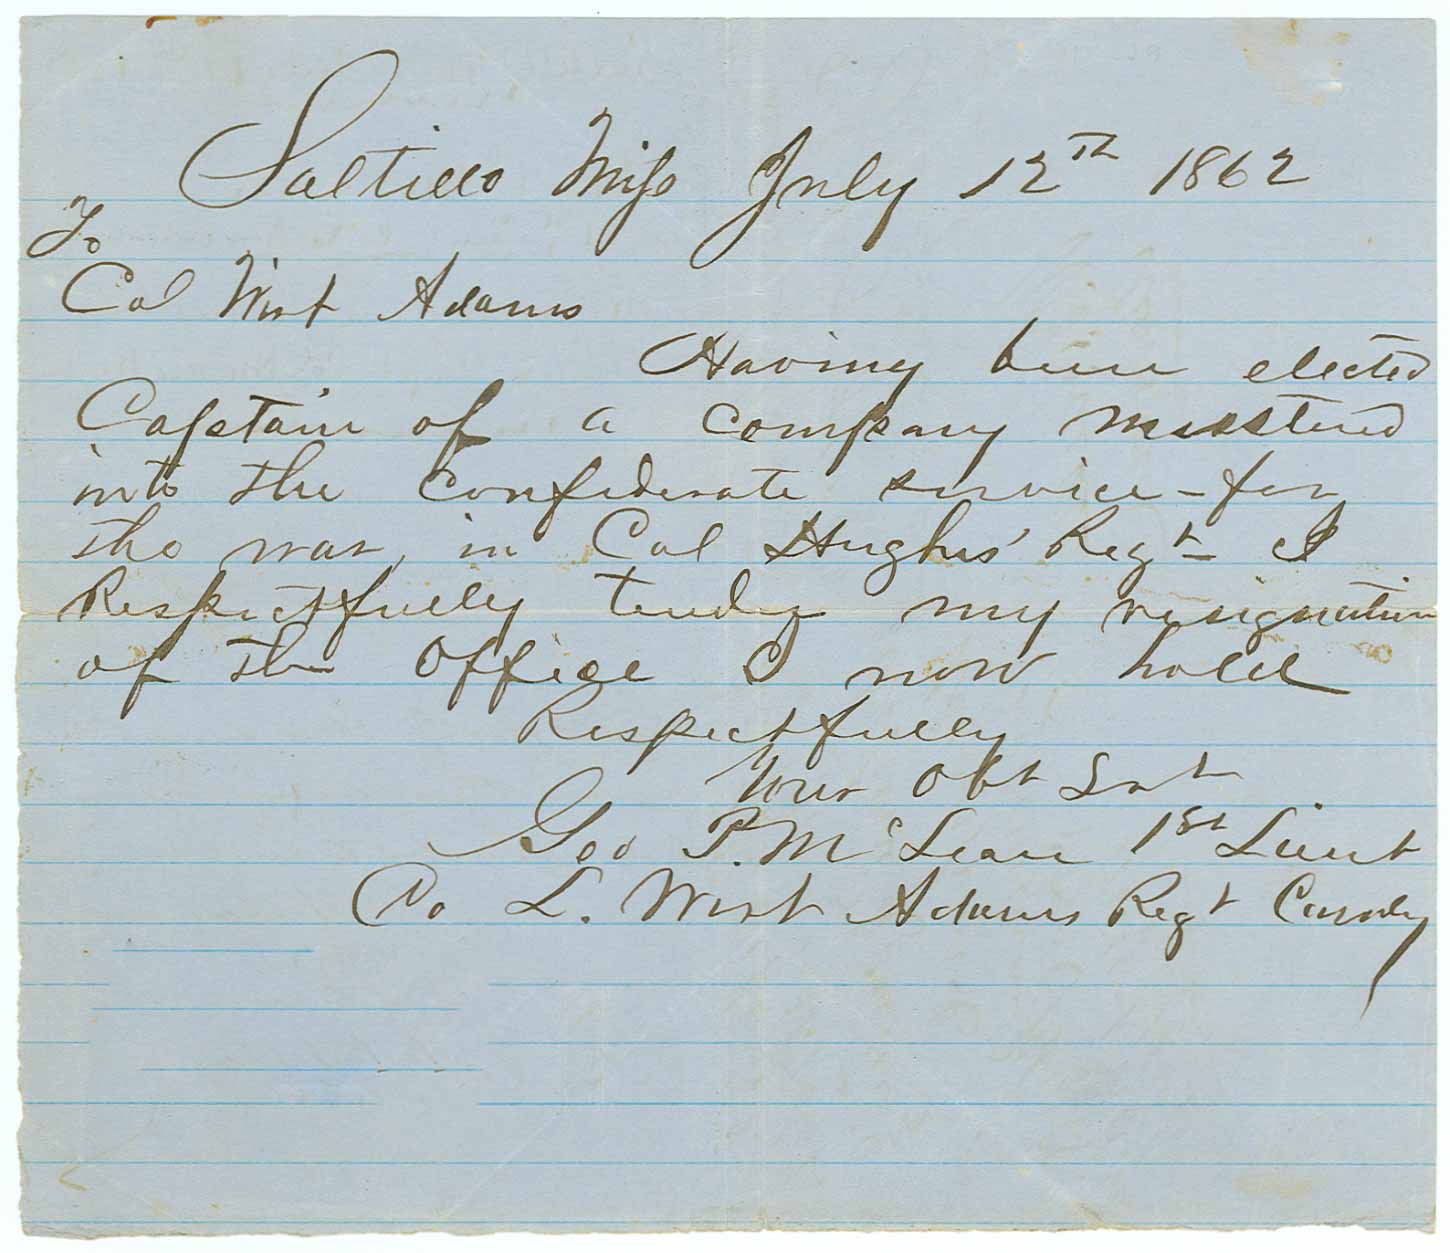 Saltillo Miss July 12th 1862
To
Col Wirt Adams
Having been elected
Captain of a company mustered
into the Confederate service - for
the war, in Col Hughs' Regt - I
Respectfully tender my resignation
of the Office I now hold
Respectfully
Your Obt Svt
Geo P. McLean 1st Lieut
Co L. Wirt Adams Regt Cavaly